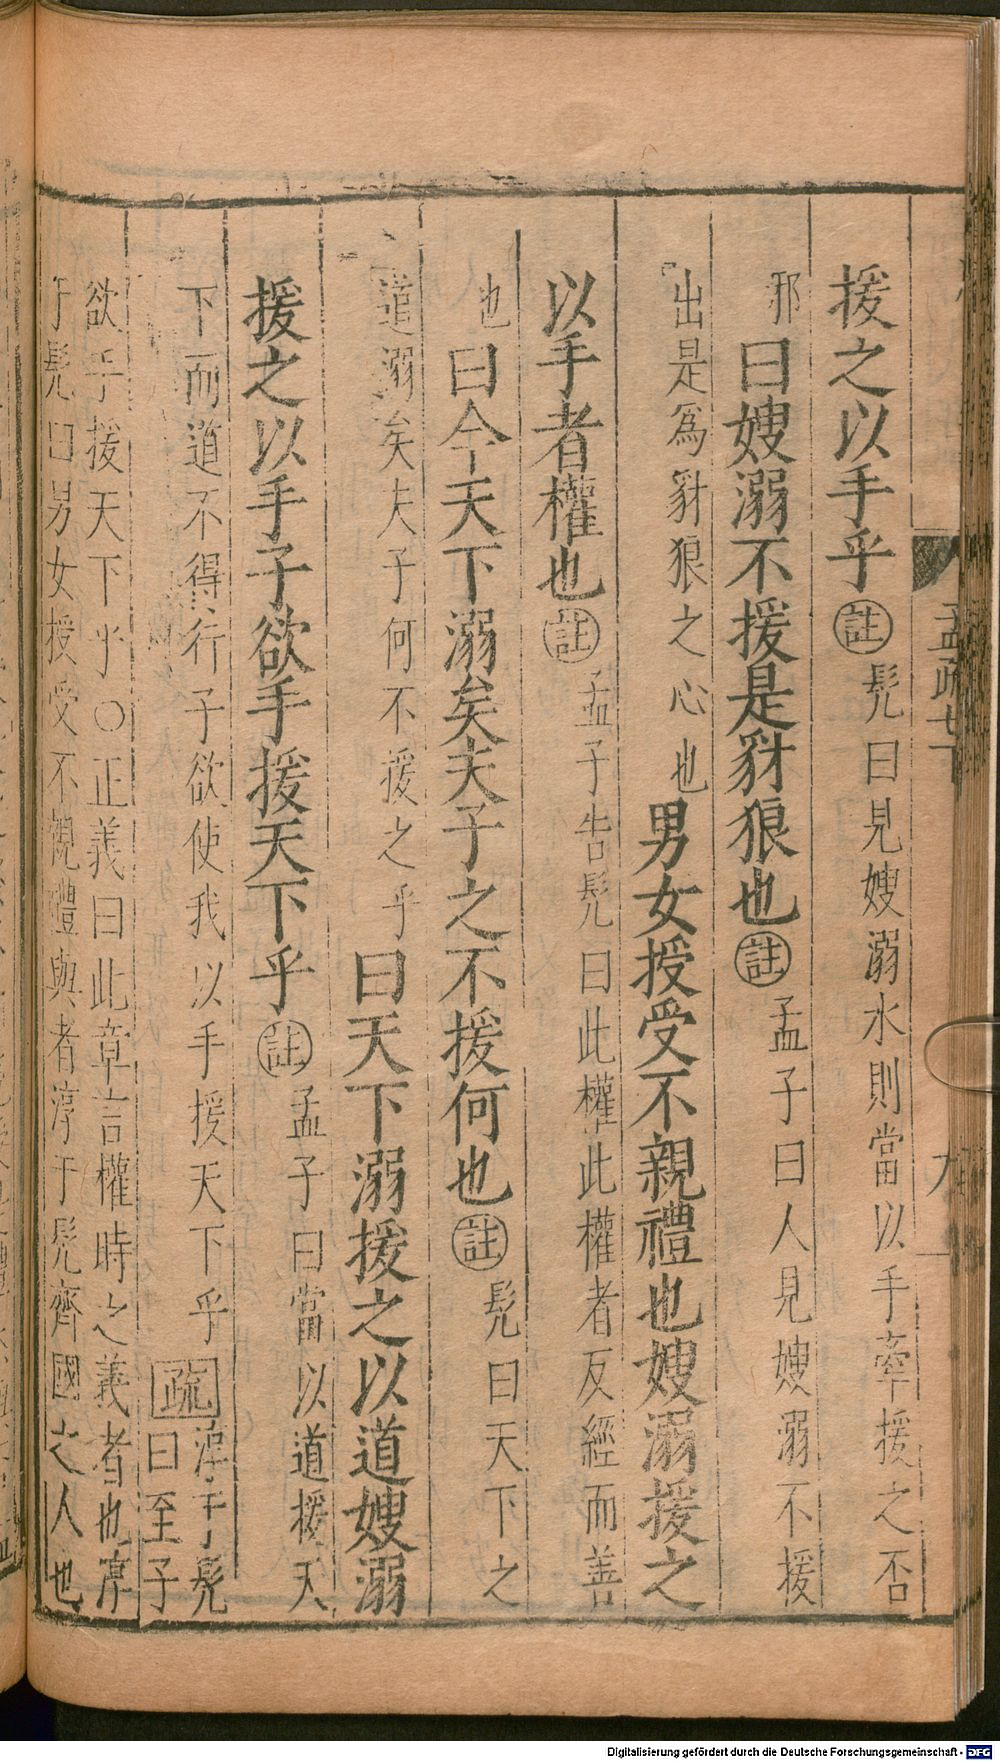 孟疏七下
援之以手乎㊟髡曰見嫂溺水則當以手牽援之否
邪曰嫂溺不援是豺狼也㊟孟子曰人見嫂溺不援
出是爲豺狼之心也男女授受不親禮也嫂溺援之
以手者權也㊟孟子告髡曰此權此權者反經而善
也曰今天下溺矣夫子之不援何也㊟髡曰天下之
道溺矣夫子何不援之乎曰天下溺援之以道嫂溺
援之以手子欲手援天下乎㊟孟子曰當以道援天
下而道不得行子欲使我以手援天下乎疏淳于髡
曰至子
欲手援天下乎〇正義曰此章言權時之義者也淳
于髡曰男女授受不親禮與者淳于髡齊國之人也
Digitalisierung gefördert durch die Deutsche Forschungsgemeinschaft - DFG